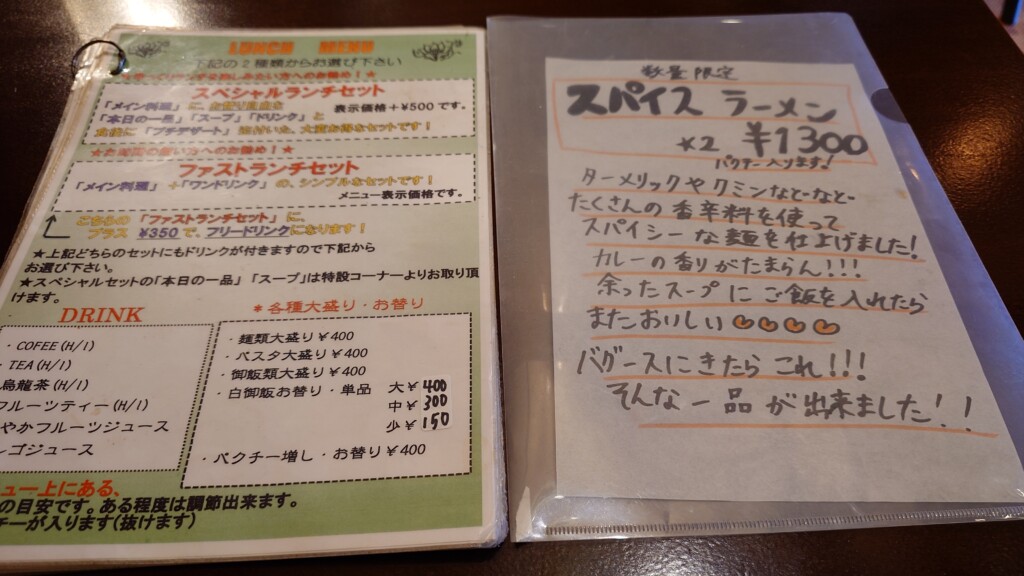 LUNCH MENU
下記の2種類からお選び下さい
スペシャルランチセット
「メイン料理」に、お替り自由な
表示価格+¥500です。
「本日の一品」「スープ」「ドリンク」と
食後に「プチデザート」は付いた、大変お得なセットです!
ファストランチセット
「メイン料理」+「ワンドリンク」の、シンプルなセットです!
メニュー表示価格です。
どちらの「ファストランチセット」に、
プラス ¥350で、フリードリンクになります!
★上記どちらのセットにもドリンクが付きますので下記から
お選び下さい。
★スペシャルセットの「本日の一品」「スープ」は特設コーナーよりお取り頂
けます。
DRINK
・COFEE(H/I)
・TEA(H/I)
烏龍茶(H/I)
フルーツティー(H/I)
やかフルーツジュース
ゴジュース
*各種大盛り・お替り
・麺類大盛り¥400
・パスタ大盛り¥400
・御飯類大盛り¥400
・白御飯お替り・単品 大¥400
中¥300
少¥150
・パクチー増し・お替り¥400
ュー上にある、
の目安です。ある程度は調節出来ます。
チーが入ります(抜けます)
数量限定
スパイス ラーメン
×2 ¥1300
パクチー入ります!
ターメリックや クミンなど・など・
たくさんの香辛料を使って
スパイシーな麺を仕上げました!
カレーの香りがたまらん!!!
余ったスープにご飯を入れたら
またおいしい
バグースにきたら これ!!!
そんな一品が出来ました!!